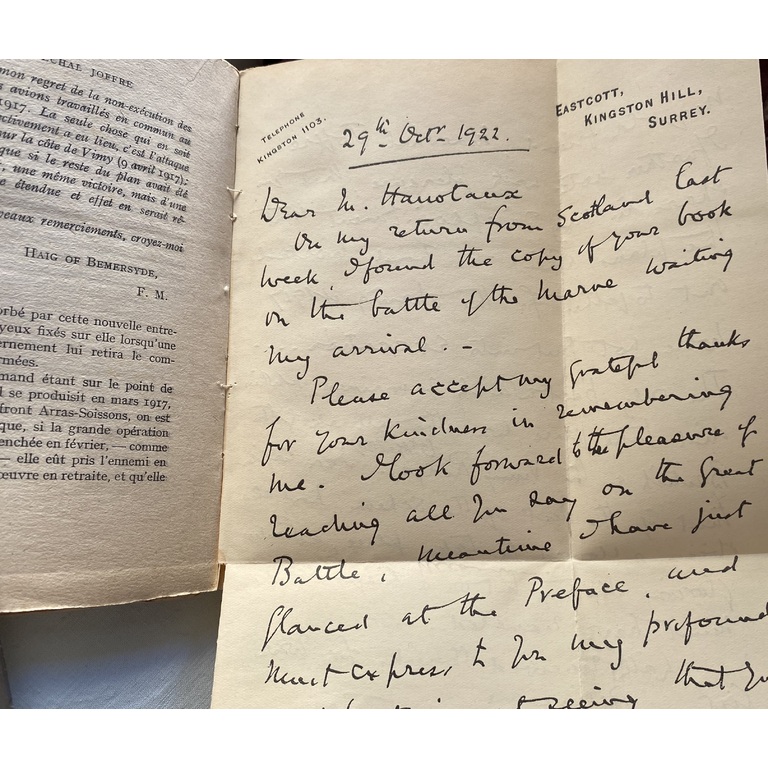 CHAL JOFFRE
mon regret de la non-exécution des
s avions travaillés en commun au
1917. La seule chose qui en soit
ctivement a eu lieu, c'est l'attaque
ur la côte de Vimy (9 avril 1917);
que si le reste du plan avait été
, une même victoire, mais d'une
e étendue et effet en serait ré-
veaux remerciements, croyez-moi
HAIG OF BEMERSYDE,
F. M.
orbé par cette nouvelle entre-
yeux fixés sur elle lorsqu'une
ernement lui retira le com-
rmées.
mand étant sur le point de
l se produisit en mars 1917,
front Arras-Soissons, on est
que, si la grande opération
enchée en février, — comme
— elle eût pris l'ennemi en
œuvre en retraite, et qu'elle
TELEPHONE
KINGSTON 1103.
EASTCOTT,
KINGSTON HILL,
SURREY.
29th Octr 1922.
Dear M. Hanotaux
On my return from Scotland last
week, I found the copy of your book
on the battle of the Marne waiting
my arrival. –
Please accept my grateful thanks
for your kindness in remembering
me. I look forward to the pleasure of
reading all you say on the Great
Battle, meantime I have just
glanced at the Preface, and
must express to you my profound
seeing that